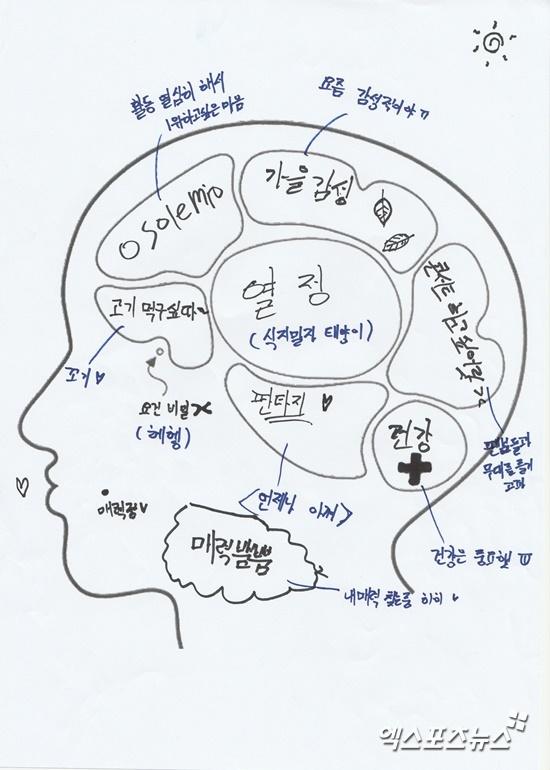 활동 열심히 해서
1위하고싶은 마음
요즘 감성국이야 ㄲ
O sole mio
가을감성
고기 먹구싶따~
열정
(식지말자 태양이)
콘서트 하고 싶어요
고기♡
요건 비밀
(헤헹)
판타지 ♥
건강
팬분들과
무대를 즐기
고파
매력점♥
<언제나 아껴>
매력뿜뿜
건강은 중요행
내매력 찾는중 히히 ♥
엑스포츠뉴스